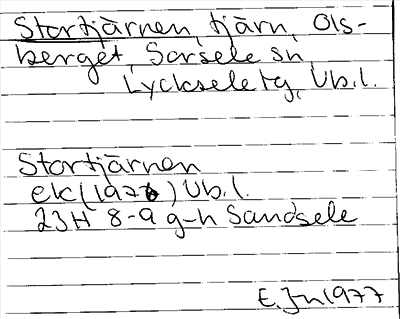 Stortjärnen, tjärn, Ols-
berget, Sorsele sn,
Lycksele tg, Vb.l.
Stortjärnen
ek (1976) Vb.l.
23H 8-9 g-h Sandsele
E.Jn 1977